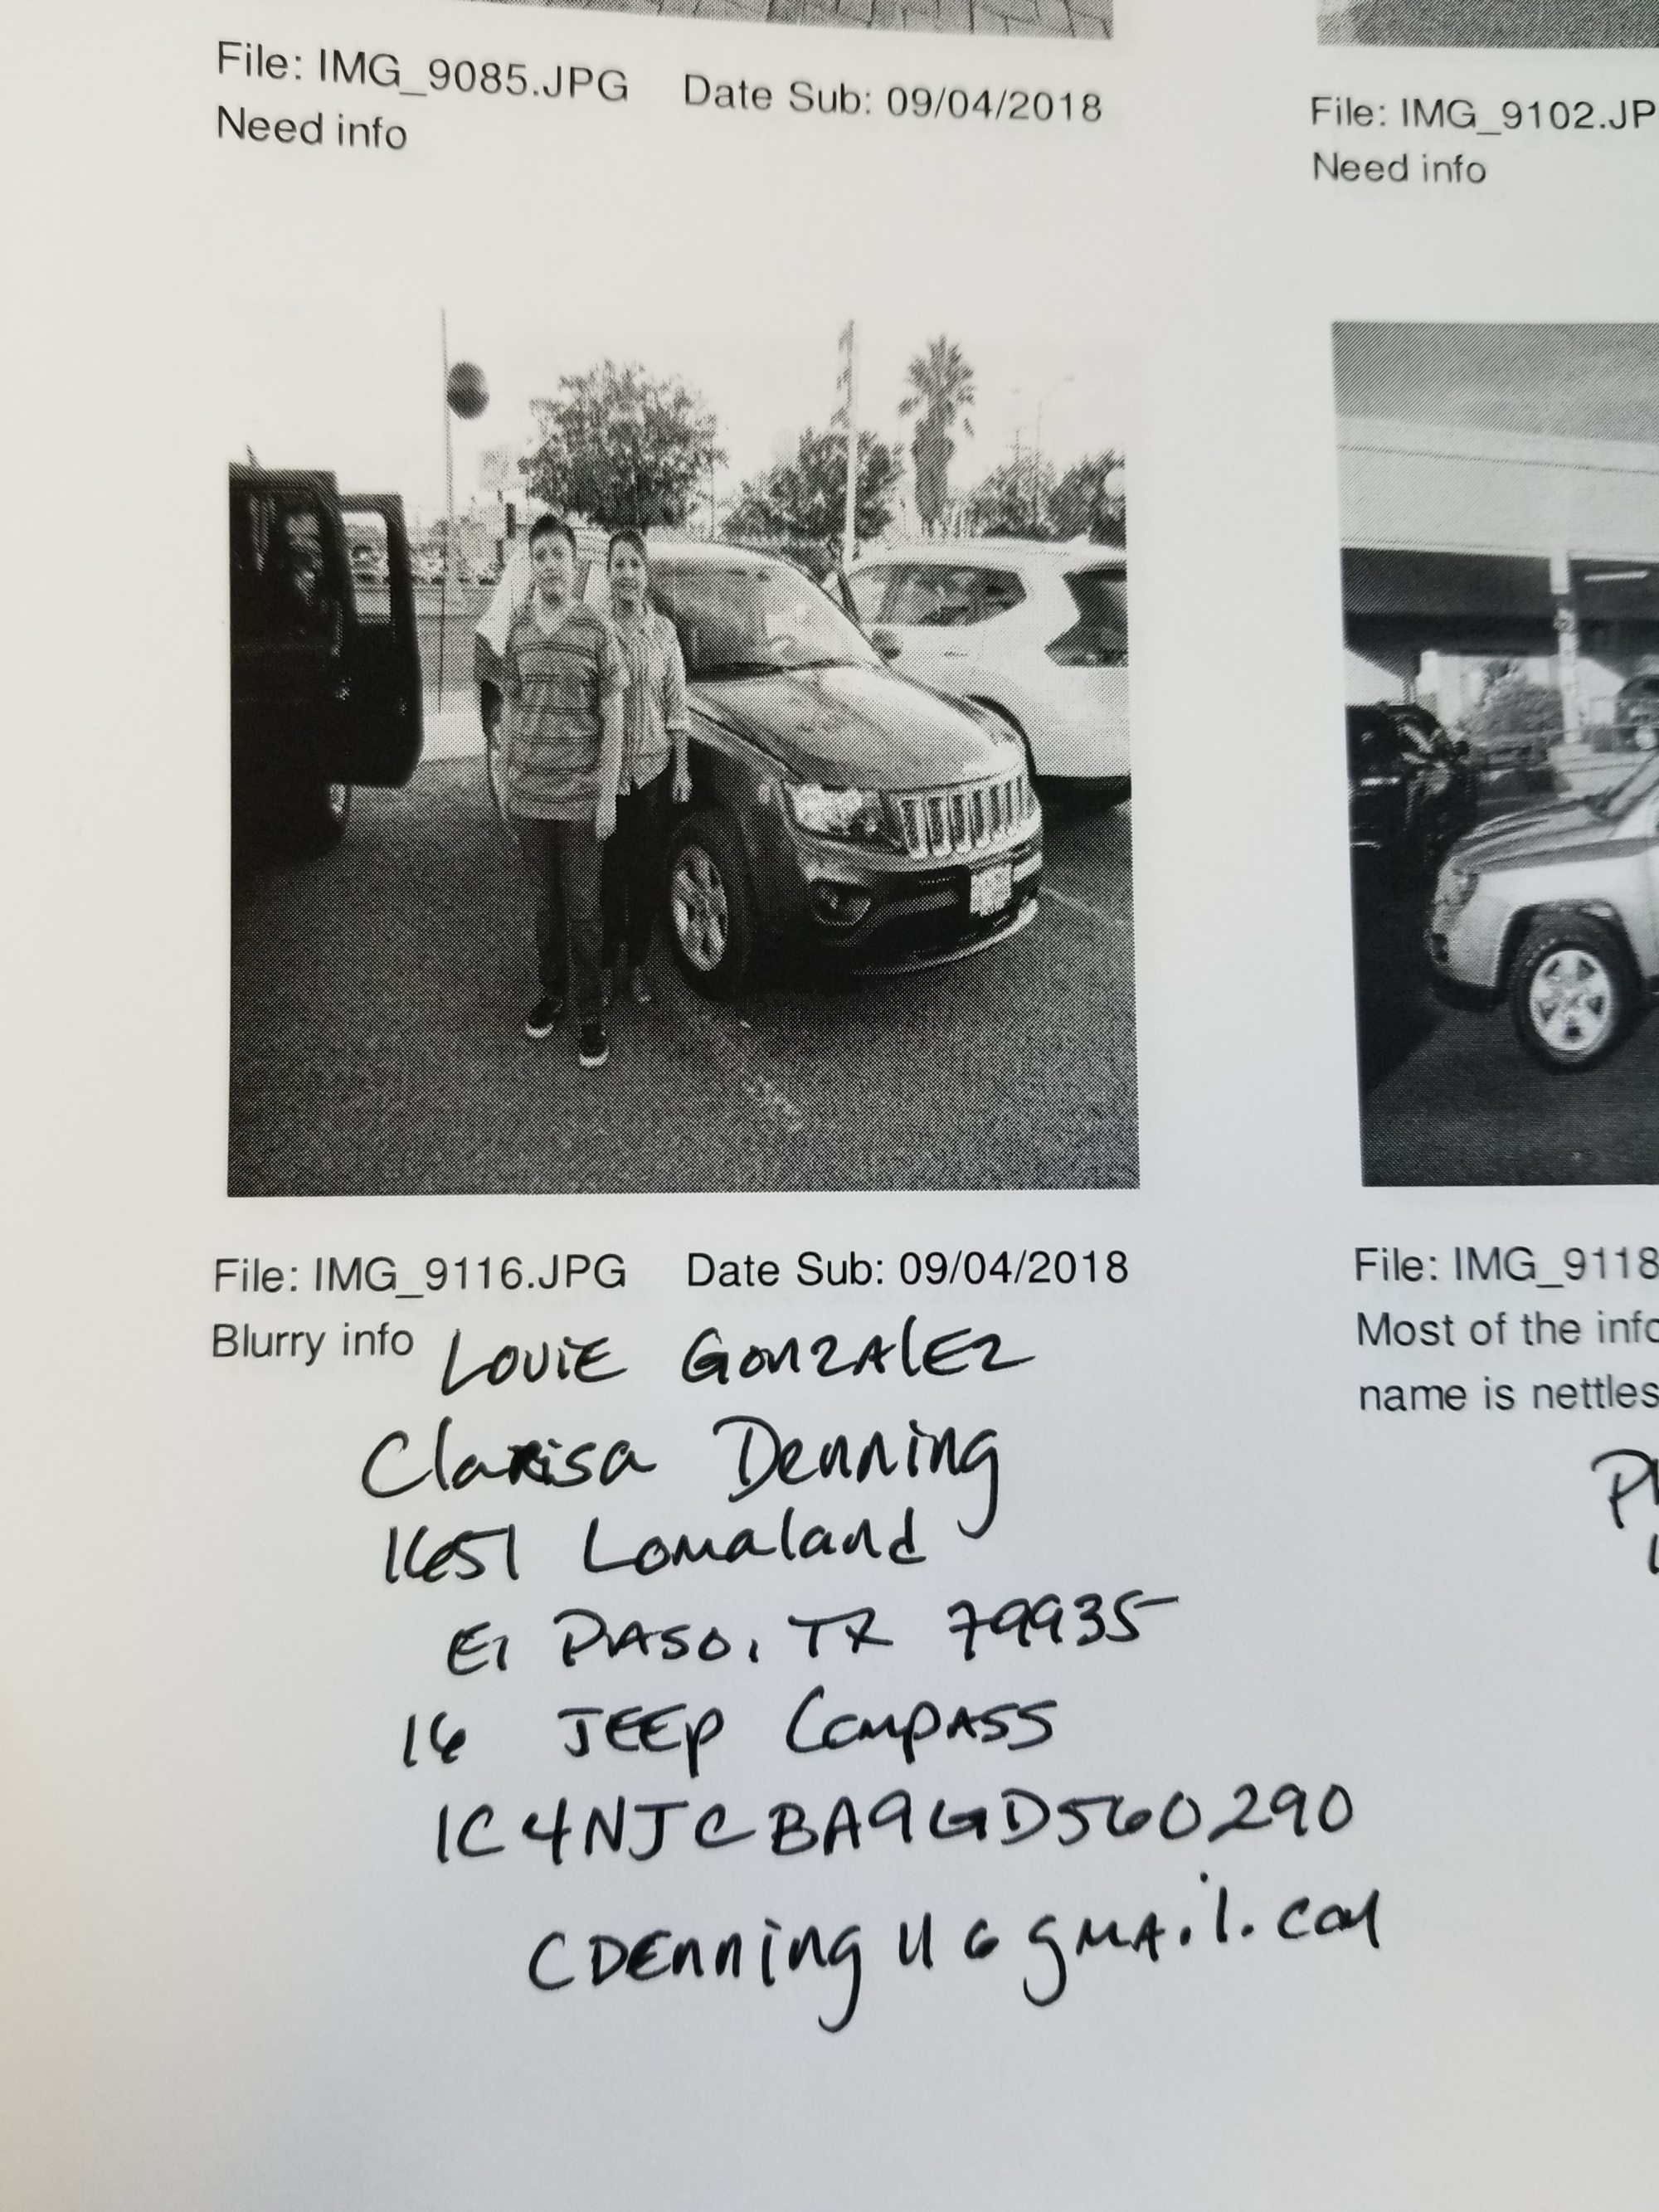 File: IMG_9085.JPG Date Sub: 09/04/2018
Need info
File: IMG_9102.JP
Need info
File: IMG_9116.JPG Date Sub: 09/04/2018
Blurry info LOUIE GONZALEZ
Clarisa Denning
1651 Lomaland
El PASO, TX 79935
16 JEEP COMPASS
1C4NJCBA9GD560290
CDEnning11@gmail.com
File: IMG_9118
Most of the info
name is nettles